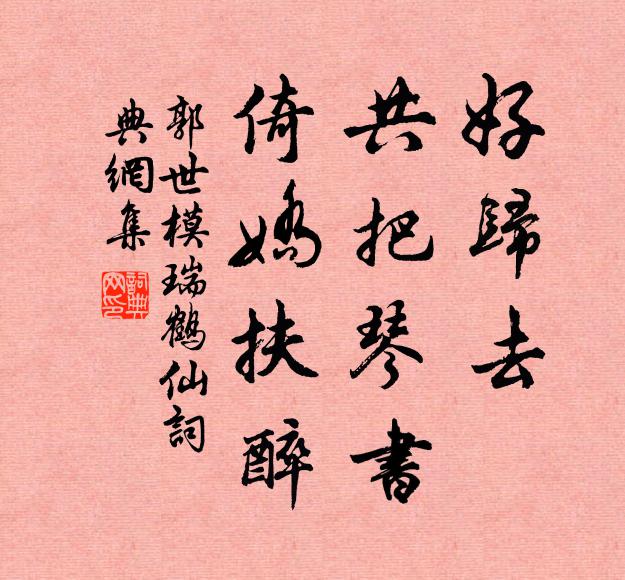 好歸去
共把琴書
倚嬌扶醉
郭世模瑞鶴仙詞
典網集
詞典
网印